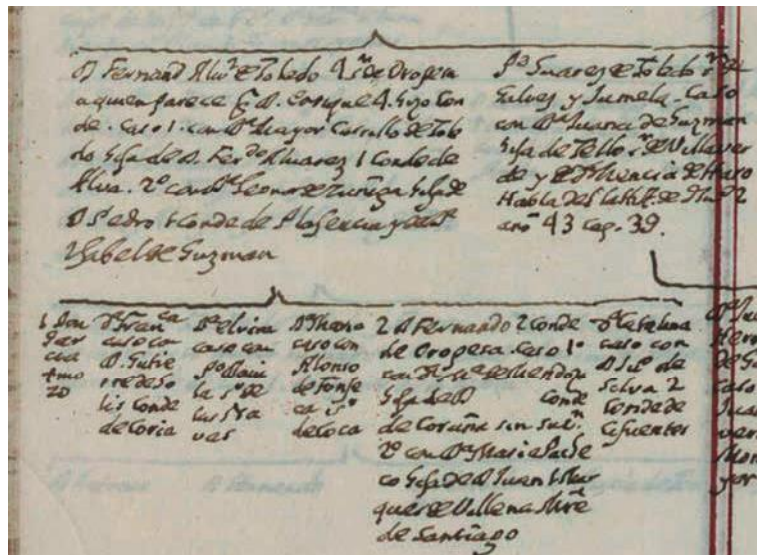 D Fernand Alvz de Toledo 4 Sr de Oropesa
a quien parece D. Enrique 4. hizo Con
de. Caso 1. con Da Mayor Carrillo de Tole
do hija de D. Ferdo Alvarez 1 Conde de
Alva. 2o con Da Leonor de Zuñiga hija de
D Pedro 1 Conde de Plasencia y de Da
Ysabel de Guzman
Po Suarez de Toledo
Galvez y Jumela. Caso
con Da Juana de Guzman
hija de Tello Sr de Villaver
de y de Da Mencia de Haro
Habla del la Hist. de D Juo 2
año 43 cap. 39.
1 Don
Gar
cia
murio
Da Franca
caso con
D. Gutie
rre de So
lis Conde
de Coria
Da elvira
caso con
la Sr de
las
ves
Da Maria
caso con
Alonso
de Fonse
ca Sr
de Coca
2 D Fernando 2 Conde
de Oropesa. Caso 1o
con Da Ma de Mendoza
hija de D Conde
de Coruña sin suc.n
2o con Da Maria Pache
co hija de D Juan 1 Mar
ques de Villena Mre
de Santiago
Da Catalina
caso con
D Juo de
Silva 2
Conde de
Cifuentes